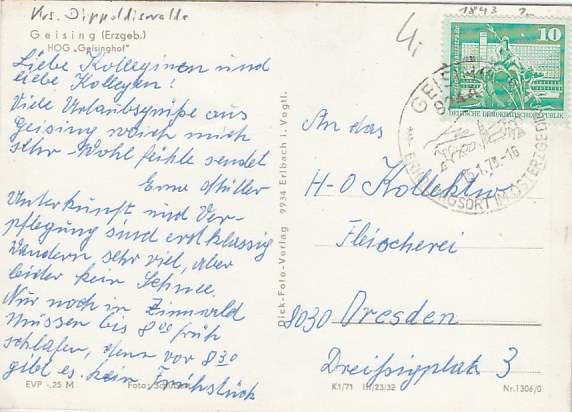 Krs. Dippoldiswalde
Geising (Erzgeb.)
HOG „Geisinghof"
Liebe Kolleginen und
liebe Kollegen!
Viele Urlaubsgrüße aus
Geising wo ich mich
sehr Wohl fühle sendet
Erna Müller
Unterkunft und Ver-
pflegung sind erstklassig
Wandern sehr viel, aber
leider kein Schnee.
Nur noch in Zinnwald
Müssen bis 8 00 früh
schlafen, denn vor 8 30
gibt es kein Frühstück
EVP -,25 M
Foto:
Dick-Foto-Verlag 9934 Erlbach i. Vogtl.
1843
10
DEUTSCHE DEMOKRATISCHE REPUBLIK
GEISING
ERHOLUNGSORT IM OSTERZGEBIRGE
15.1.75.-16
An das
H-O Kollektiv
Fleischerei
8030 Dresden
Dreißigplatz 3
K1/71 III/23/32
Nr.1306/0